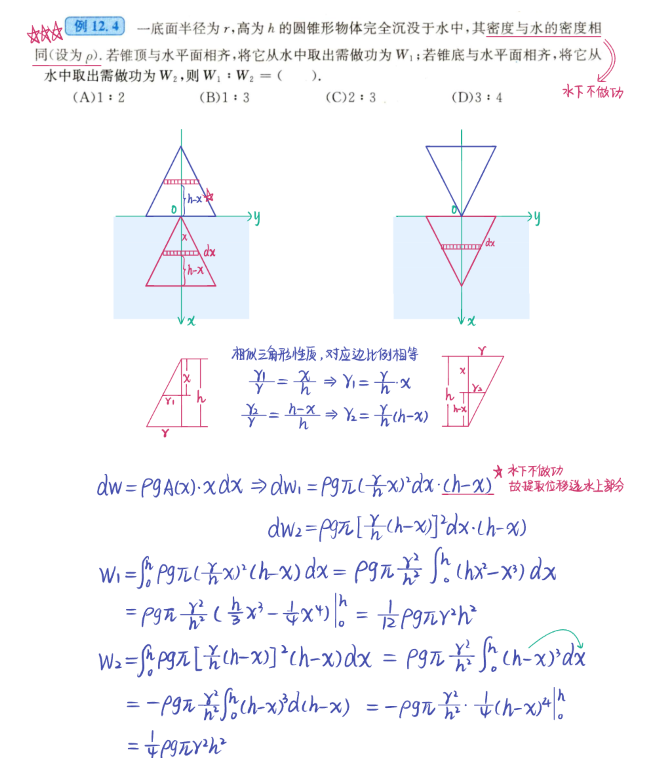 例 12.4 一底面半径为 r,高为 h 的圆锥形物体完全沉没于水中,其密度与水的密度相
同(设为 ρ).若锥顶与水平面相齐,将它从水中取出需做功为 W₁;若锥底与水平面相齐,将它从
水中取出需做功为 W₂,则 W₁ : W₂ = ( ).
(A)1 : 2 (B)1 : 3 (C)2 : 3 (D)3 : 4
水下不做功
h-x
0 y
x dx
h-x
x
0 y
dx
x
相似三角形性质,对应边比例相等
r₁/r = x/h ⇒ r₁ = r/h · x
r₂/r = h-x/h ⇒ r₂ = r/h (h-x)
x
r₁ h
r
r
x
h r₂
h-x
水下不做功
dw = ρgA(x)·xdx ⇒ dw₁ = ρgπ(r/h x)²dx·(h-x)
故提取位移选水上部分
dw₂ = ρgπ[r/h (h-x)]²dx·(h-x)
W₁ = ∫₀ʰ ρgπ(r/h x)²(h-x)dx = ρgπ r²/h² ∫₀ʰ (hx²-x³)dx
= ρgπ r²/h² (h/3 x³ - 1/4 x⁴)|₀ʰ = 1/12 ρgπr²h²
W₂ = ∫₀ʰ ρgπ[r/h (h-x)]²(h-x)dx = ρgπ r²/h² ∫₀ʰ (h-x)³dx
= -ρgπ r²/h² ∫₀ʰ (h-x)³d(h-x) = -ρgπ r²/h² · 1/4 (h-x)⁴|₀ʰ
= 1/4 ρgπr²h²